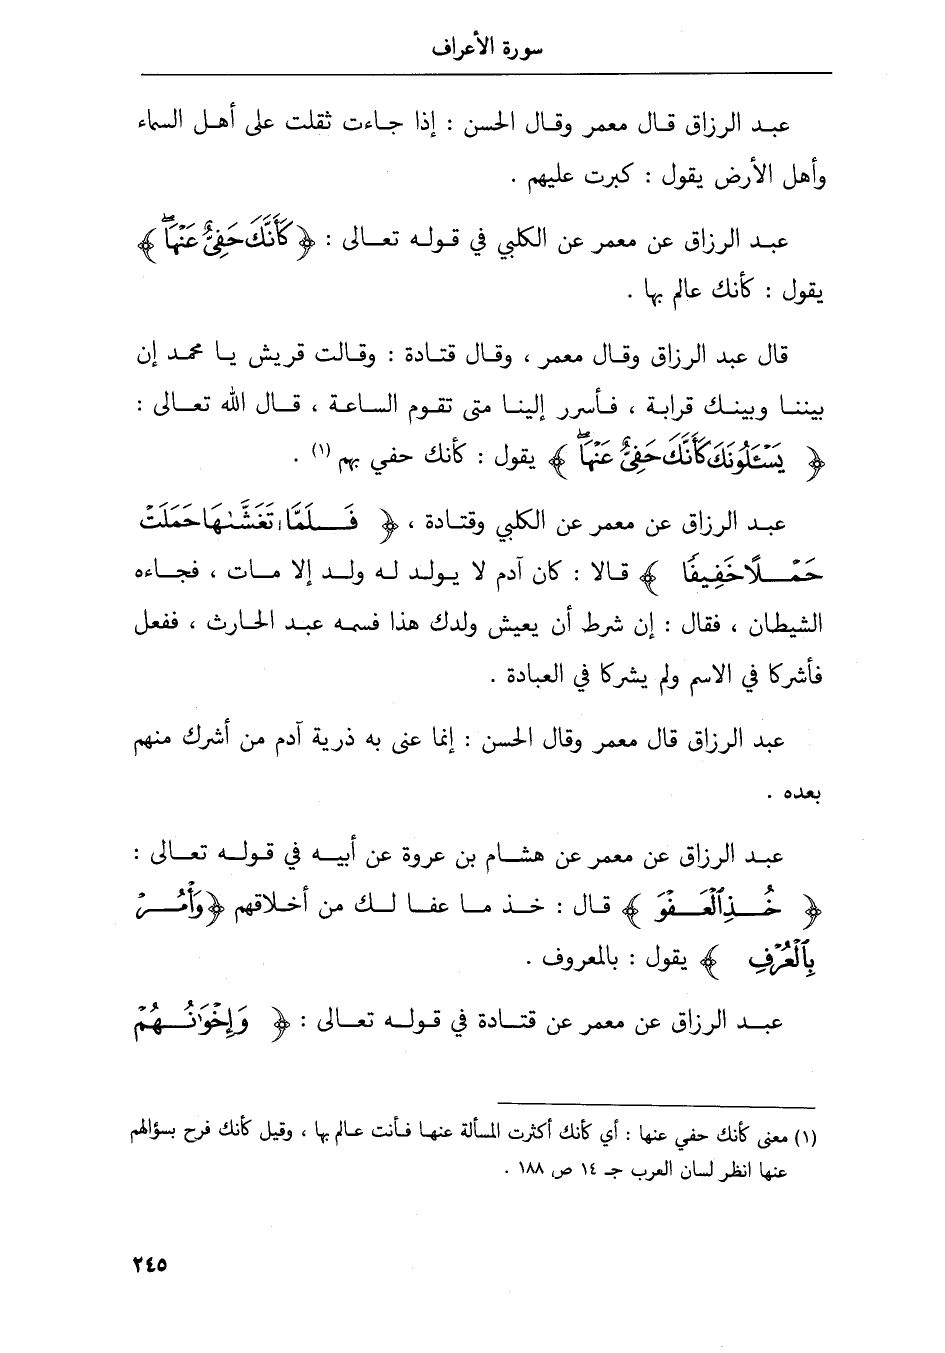 سورة الأعراف
عبد الرزاق قال معمر وقال الحسن : إذا جاءت ثقلت على أهل السماء
وأهل الأرض يقول : كبرت عليهم .
عبد الرزاق عن معمر عن الكلبي في قوله تعالى : ﴿ كَأَنَّكَ حَفِيٌّ عَنْهَا ۖ ﴾
يقول : كأنك عالم بها .
قال عبد الرزاق وقال معمر ، وقال قتادة : وقالت قريش يا محمد إن
بيننا وبينك قرابة ، فأسرر إلينا متى تقوم الساعة ، قال الله تعالى :
﴿ يَسْـَٔلُونَكَ كَأَنَّكَ حَفِيٌّ عَنْهَا ۖ ﴾ يقول : كأنك حفي بهم (١) .
عبد الرزاق عن معمر عن الكلبي وقتادة ، ﴿ فَلَمَّا تَغَشَّىٰهَا حَمَلَتْ
حَمْلًا خَفِيفًا ﴾ قالا : كان آدم لا يولد له ولد إلا مات ، فجاءه
الشيطان ، فقال : إن شرط أن يعيش ولدك هذا فسمه عبد الحارث ، ففعل
فأشركا في الاسم ولم يشركا في العبادة .
عبد الرزاق قال معمر وقال الحسن : إنما عنى به ذرية آدم من أشرك منهم
بعده .
عبد الرزاق عن معمر عن هشام بن عروة عن أبيه في قوله تعالى :
﴿ خُذِ ٱلْعَفْوَ ﴾ قال : خذ ما عفا لك من أخلاقهم ﴿ وَأْمُرْ
بِٱلْعُرْفِ ﴾ يقول : بالمعروف .
عبد الرزاق عن معمر عن قتادة في قوله تعالى : ﴿ وَإِخْوَٰنُهُمْ
(١) معنى كأنك حفي عنها : أي كأنك أكثرت المسألة عنها فأنت عالم بها ، وقيل كأنك فرح بسؤالهم
عنها انظر لسان العرب جـ ١٤ ص ١٨٨ .
٢٤٥